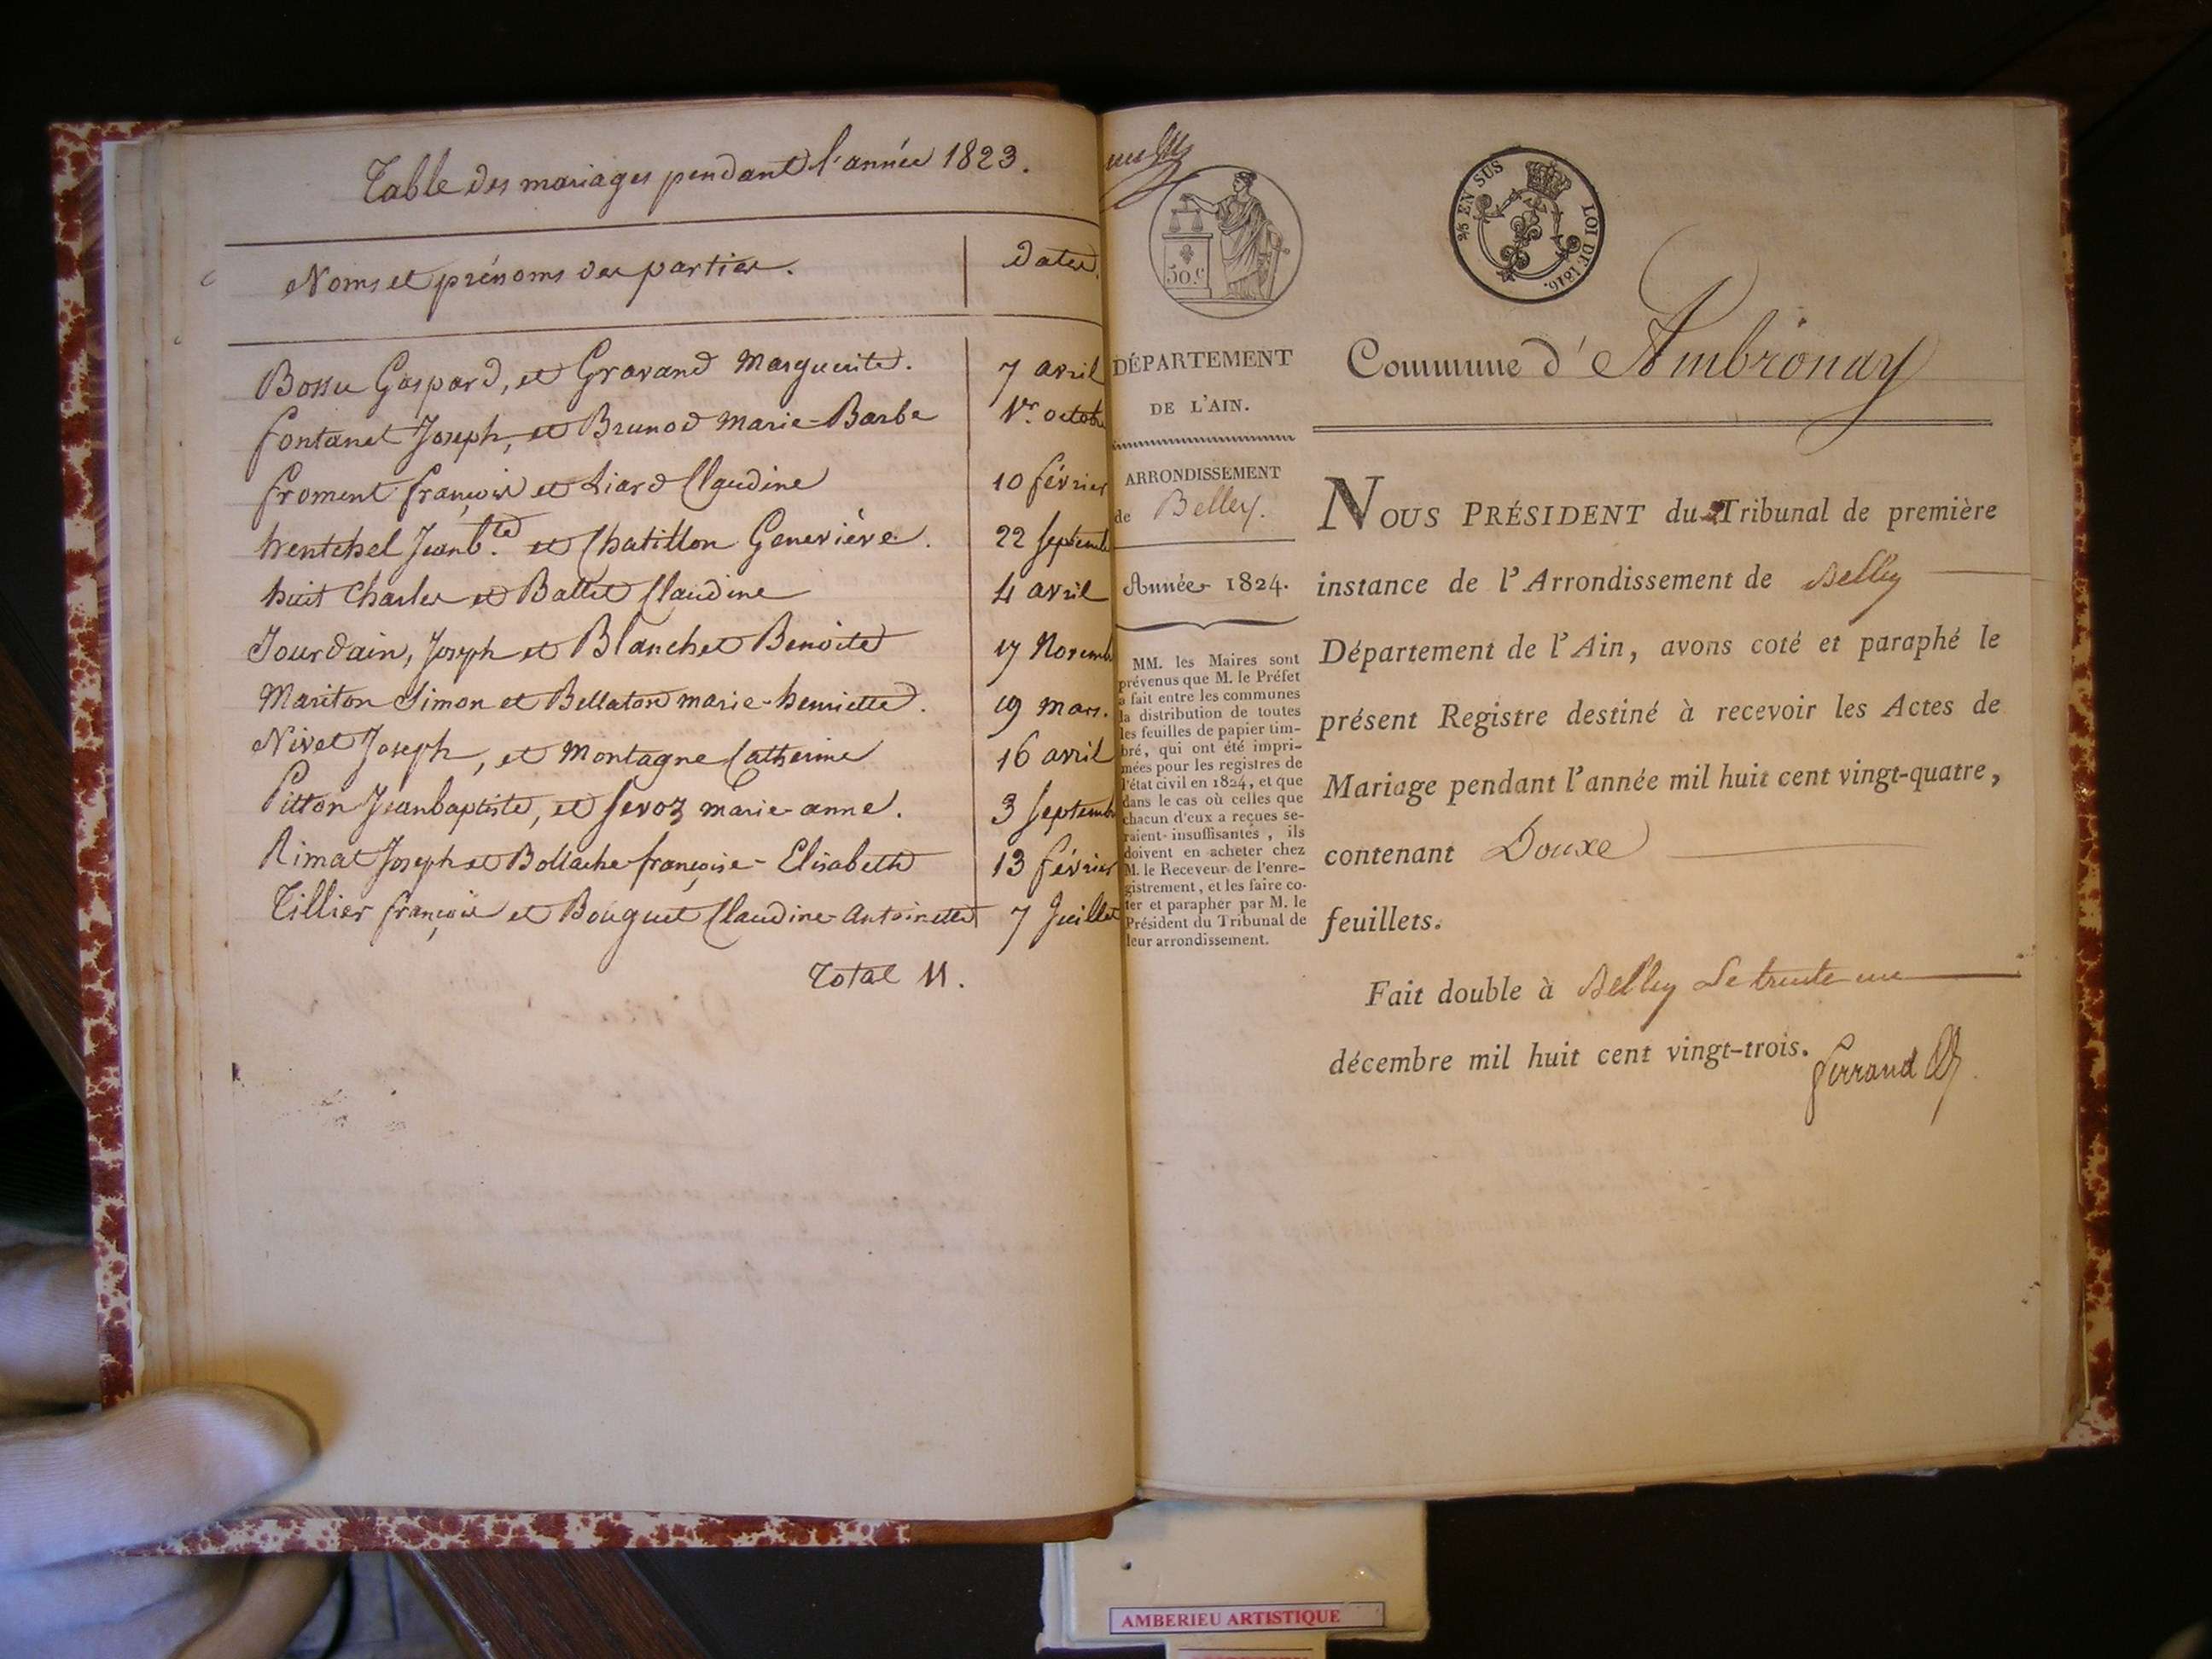 Table des mariages pendant l'année 1823.
Noms et prénoms des parties.
Dates.
Bossu Gaspard, et Gravand Marguerite.
7 avril
fontanel Joseph, et Brunod Marie-Barbe
1er octobre
froment françois et Liard Claudine
10 février
hentchel Jean bte et Chatillon Geneviève.
22 septemb
huit Charles et Ballet Claudine
4 avril
Jourdain, Joseph et Blanchet Benoite
17 Novemb
Mariton Simon et Bellaton marie-henriette.
19 mars.
Nivet Joseph, et Montagne Catherine
16 avril
Pitton Jeanbaptiste, et Sevoz marie anne.
3 septemb
Rimat Joseph et Bollache françoise-Elisabeth
13 février
Tillier françois et Bouguet Claudine-antoinette
7 Juillet
Total 11.
50.c
2/5 EN SUS
LOI DE 1816.
DÉPARTEMENT
DE L'AIN.
ARRONDISSEMENT
de Belley.
Année 1824.
MM. les Maires sont
prévenus que M. le Préfet
a fait entre les communes
la distribution de toutes
les feuilles de papier tim-
bré, qui ont été impri-
mées pour les registres de
l'état civil en 1824, et que
dans le cas où celles que
chacun d'eux a reçues se-
raient insuffisantes, ils
doivent en acheter chez
M. le Receveur de l'enre-
gistrement, et les faire co-
ter et parapher par M. le
Président du Tribunal de
leur arrondissement.
Commune d'Ambronay
NOUS PRÉSIDENT du Tribunal de première
instance de l'Arrondissement de Belley
Département de l'Ain, avons coté et paraphé le
présent Registre destiné à recevoir les Actes de
Mariage pendant l'année mil huit cent vingt-quatre,
contenant Douze
feuillets.
Fait double à Belley Le trente un
décembre mil huit cent vingt-trois.
ferrand
AMBERIEU ARTISTIQUE